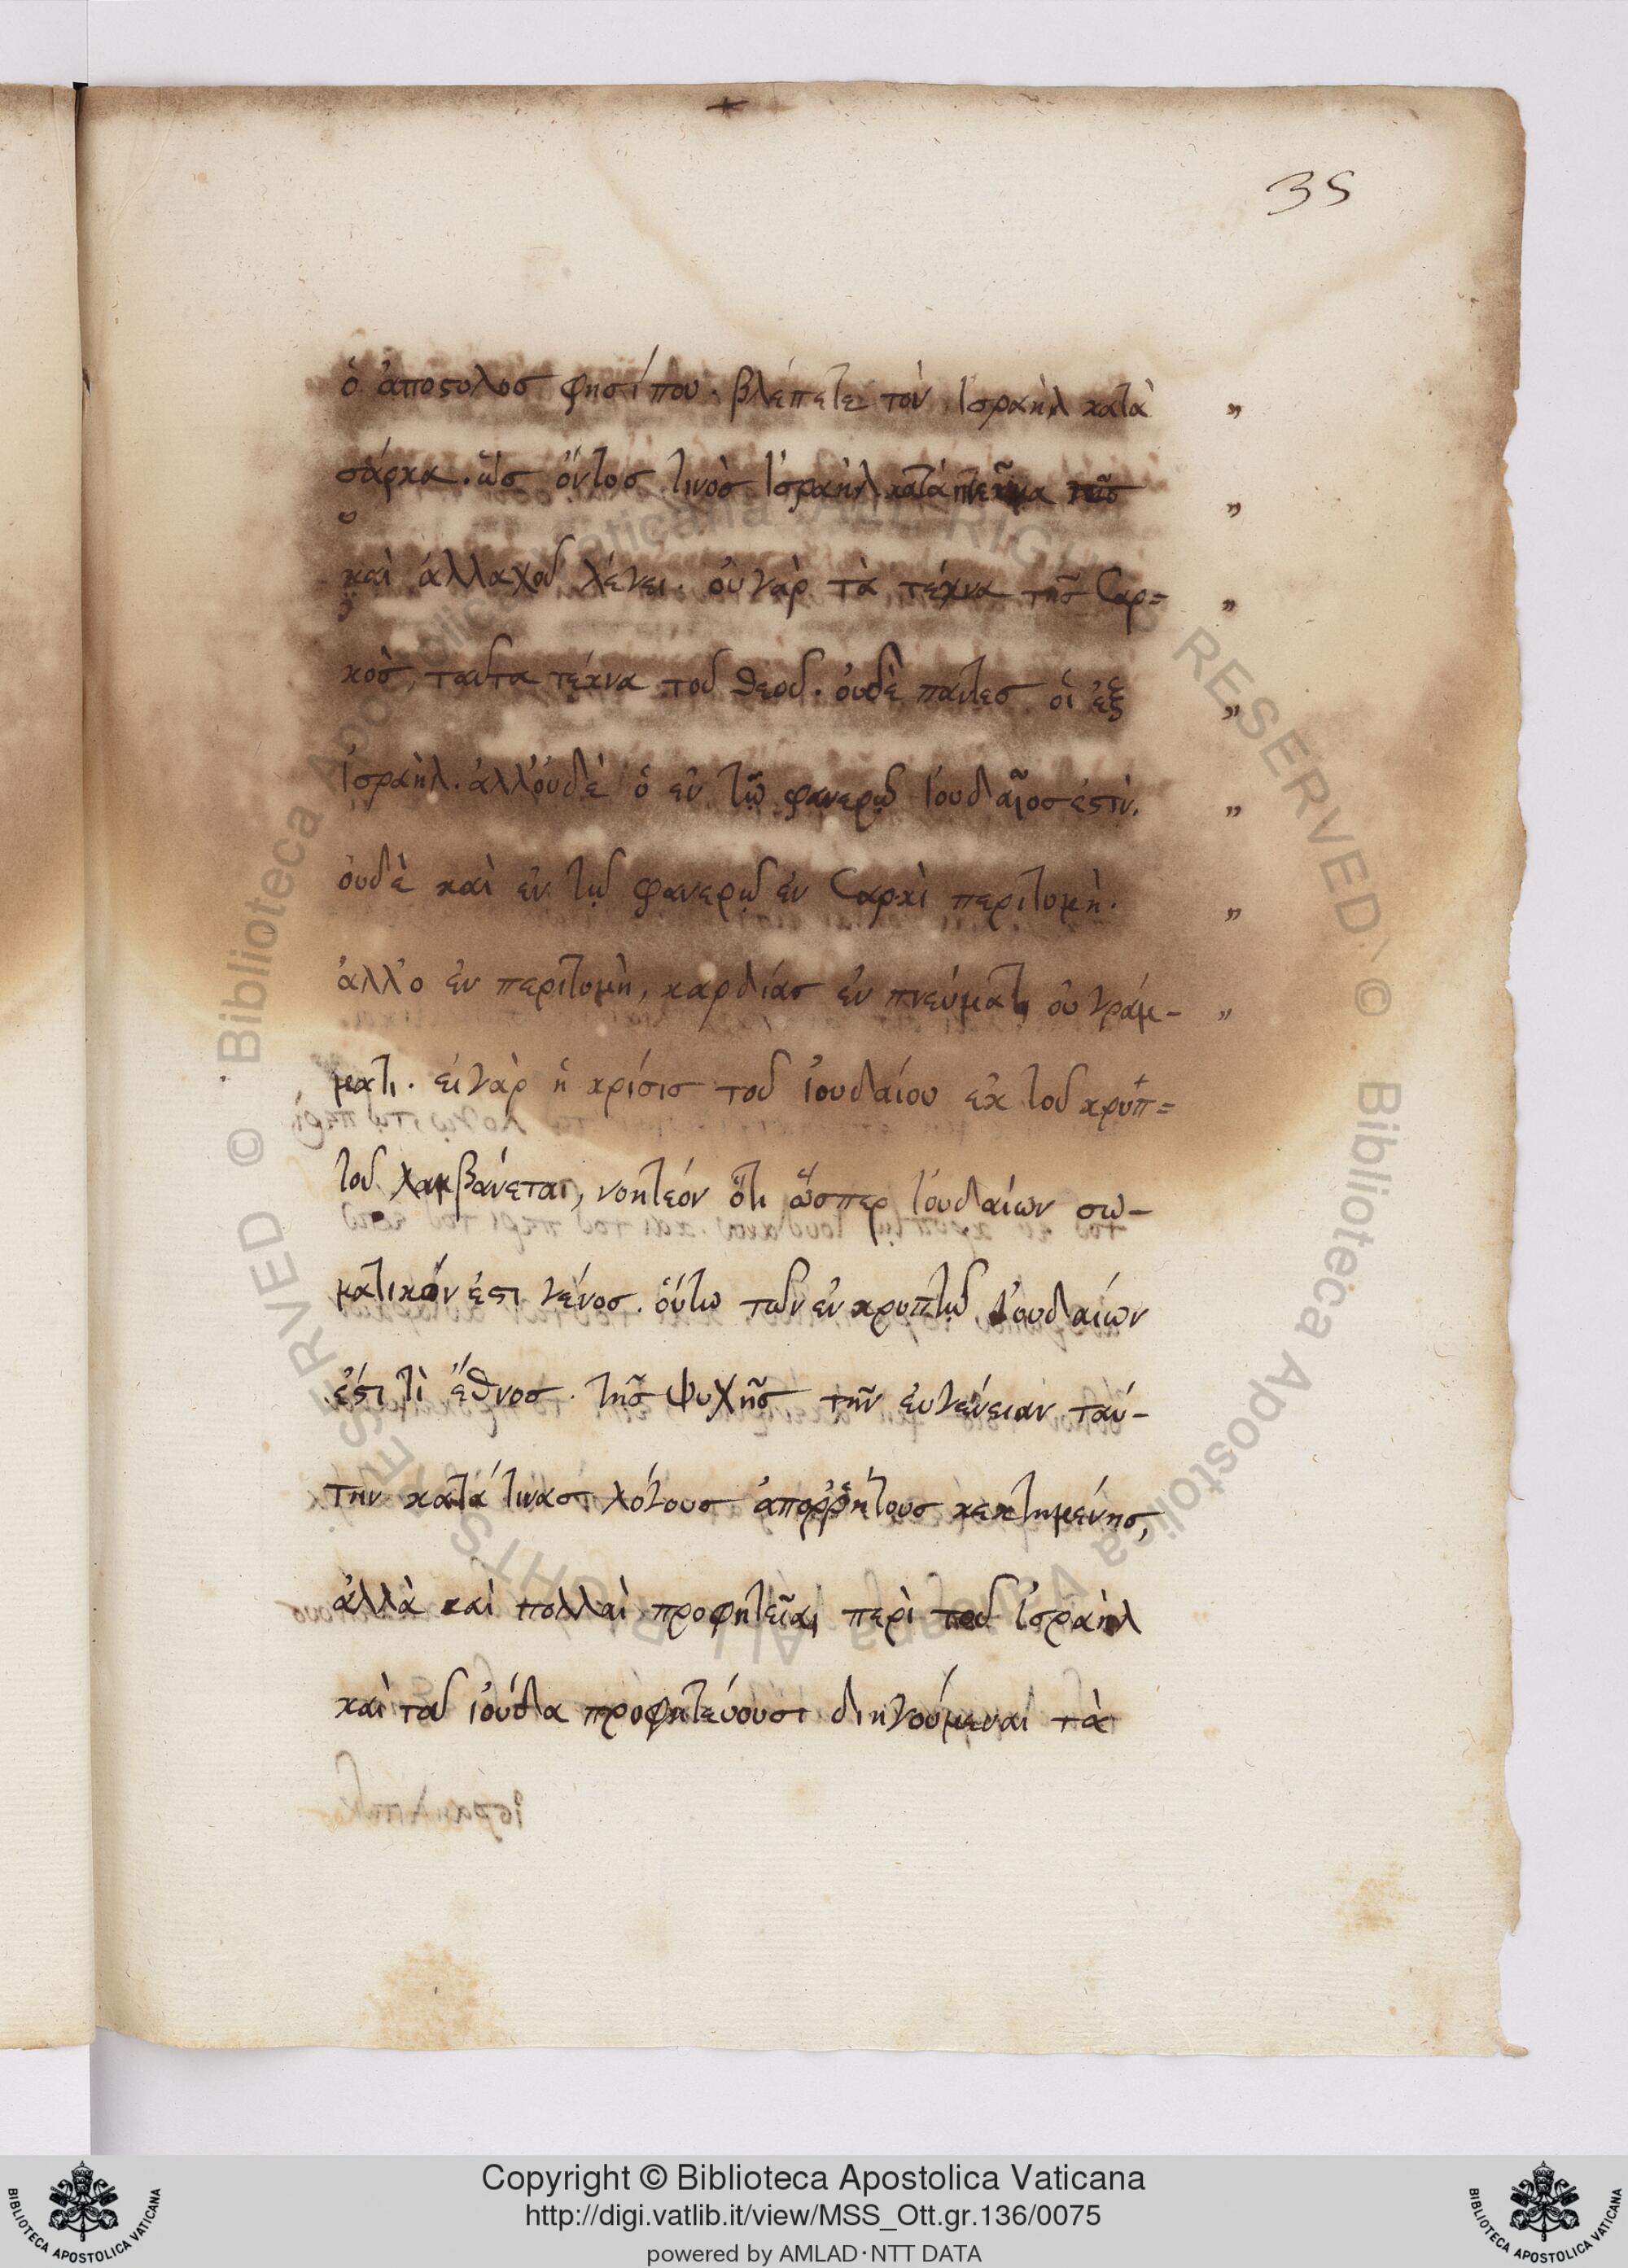 35
ὁ ἀπόστολος φησί που. βλέπετε τὸν Ἰσραὴλ κατὰ „
σάρκα. ὡς ὄντος τινὸς Ἰσραὴλ κατὰ πνεῦμα „
καὶ ἀλλαχοῦ λέγει. οὐ γὰρ τὰ τέκνα τῆς σαρ= „
κὸς, ταῦτα τέκνα τοῦ θεοῦ. οὐδὲ πάντες οἱ ἐξ „
Ἰσραὴλ. ἀλλ' οὐδὲ ὁ ἐν τῶ φανερῷ Ἰουδαῖος ἐστὶν. „
οὐδὲ καὶ ἐν τῷ φανερῷ ἐν σαρκὶ περιτομὴ. „
ἀλλ' ὁ ἐν περιτομὴ, καρδίας ἐν πνεύματι, οὐ γράμ- „
ματι. εἰ γὰρ ἡ κρίσις τοῦ ἰουδαίου ἐκ τοῦ κρυπ=
τοῦ λαμβάνεται, νοητέον ὅτι ὥσπερ Ἰουδαίων σω-
ματικόν ἐστι γένος. οὕτω τῶν ἐν κρυπτῷ Ἰουδαίων
ἐστι τὶ ἔθνος. τῆς ψυχῆς τῆν εὐγένειαν ταύ-
την κατά τινας λόγους ἀποῤῥήτους κεκτημένης,
ἀλλὰ καὶ πολλαὶ προφητεῖαι περὶ τοῦ Ἰσραὴλ
καὶ τοῦ ἰούδα προφητεύουσι διηγούμεναι τὰ
Copyright © Biblioteca Apostolica Vaticana
http://digi.vatlib.it/view/MSS_Ott.gr.136/0075
powered by AMLAD·NTT DATA
BIBLIOTECA APOSTOLICA VATICANA
BIBLIOTECA APOSTOLICA VATICANA